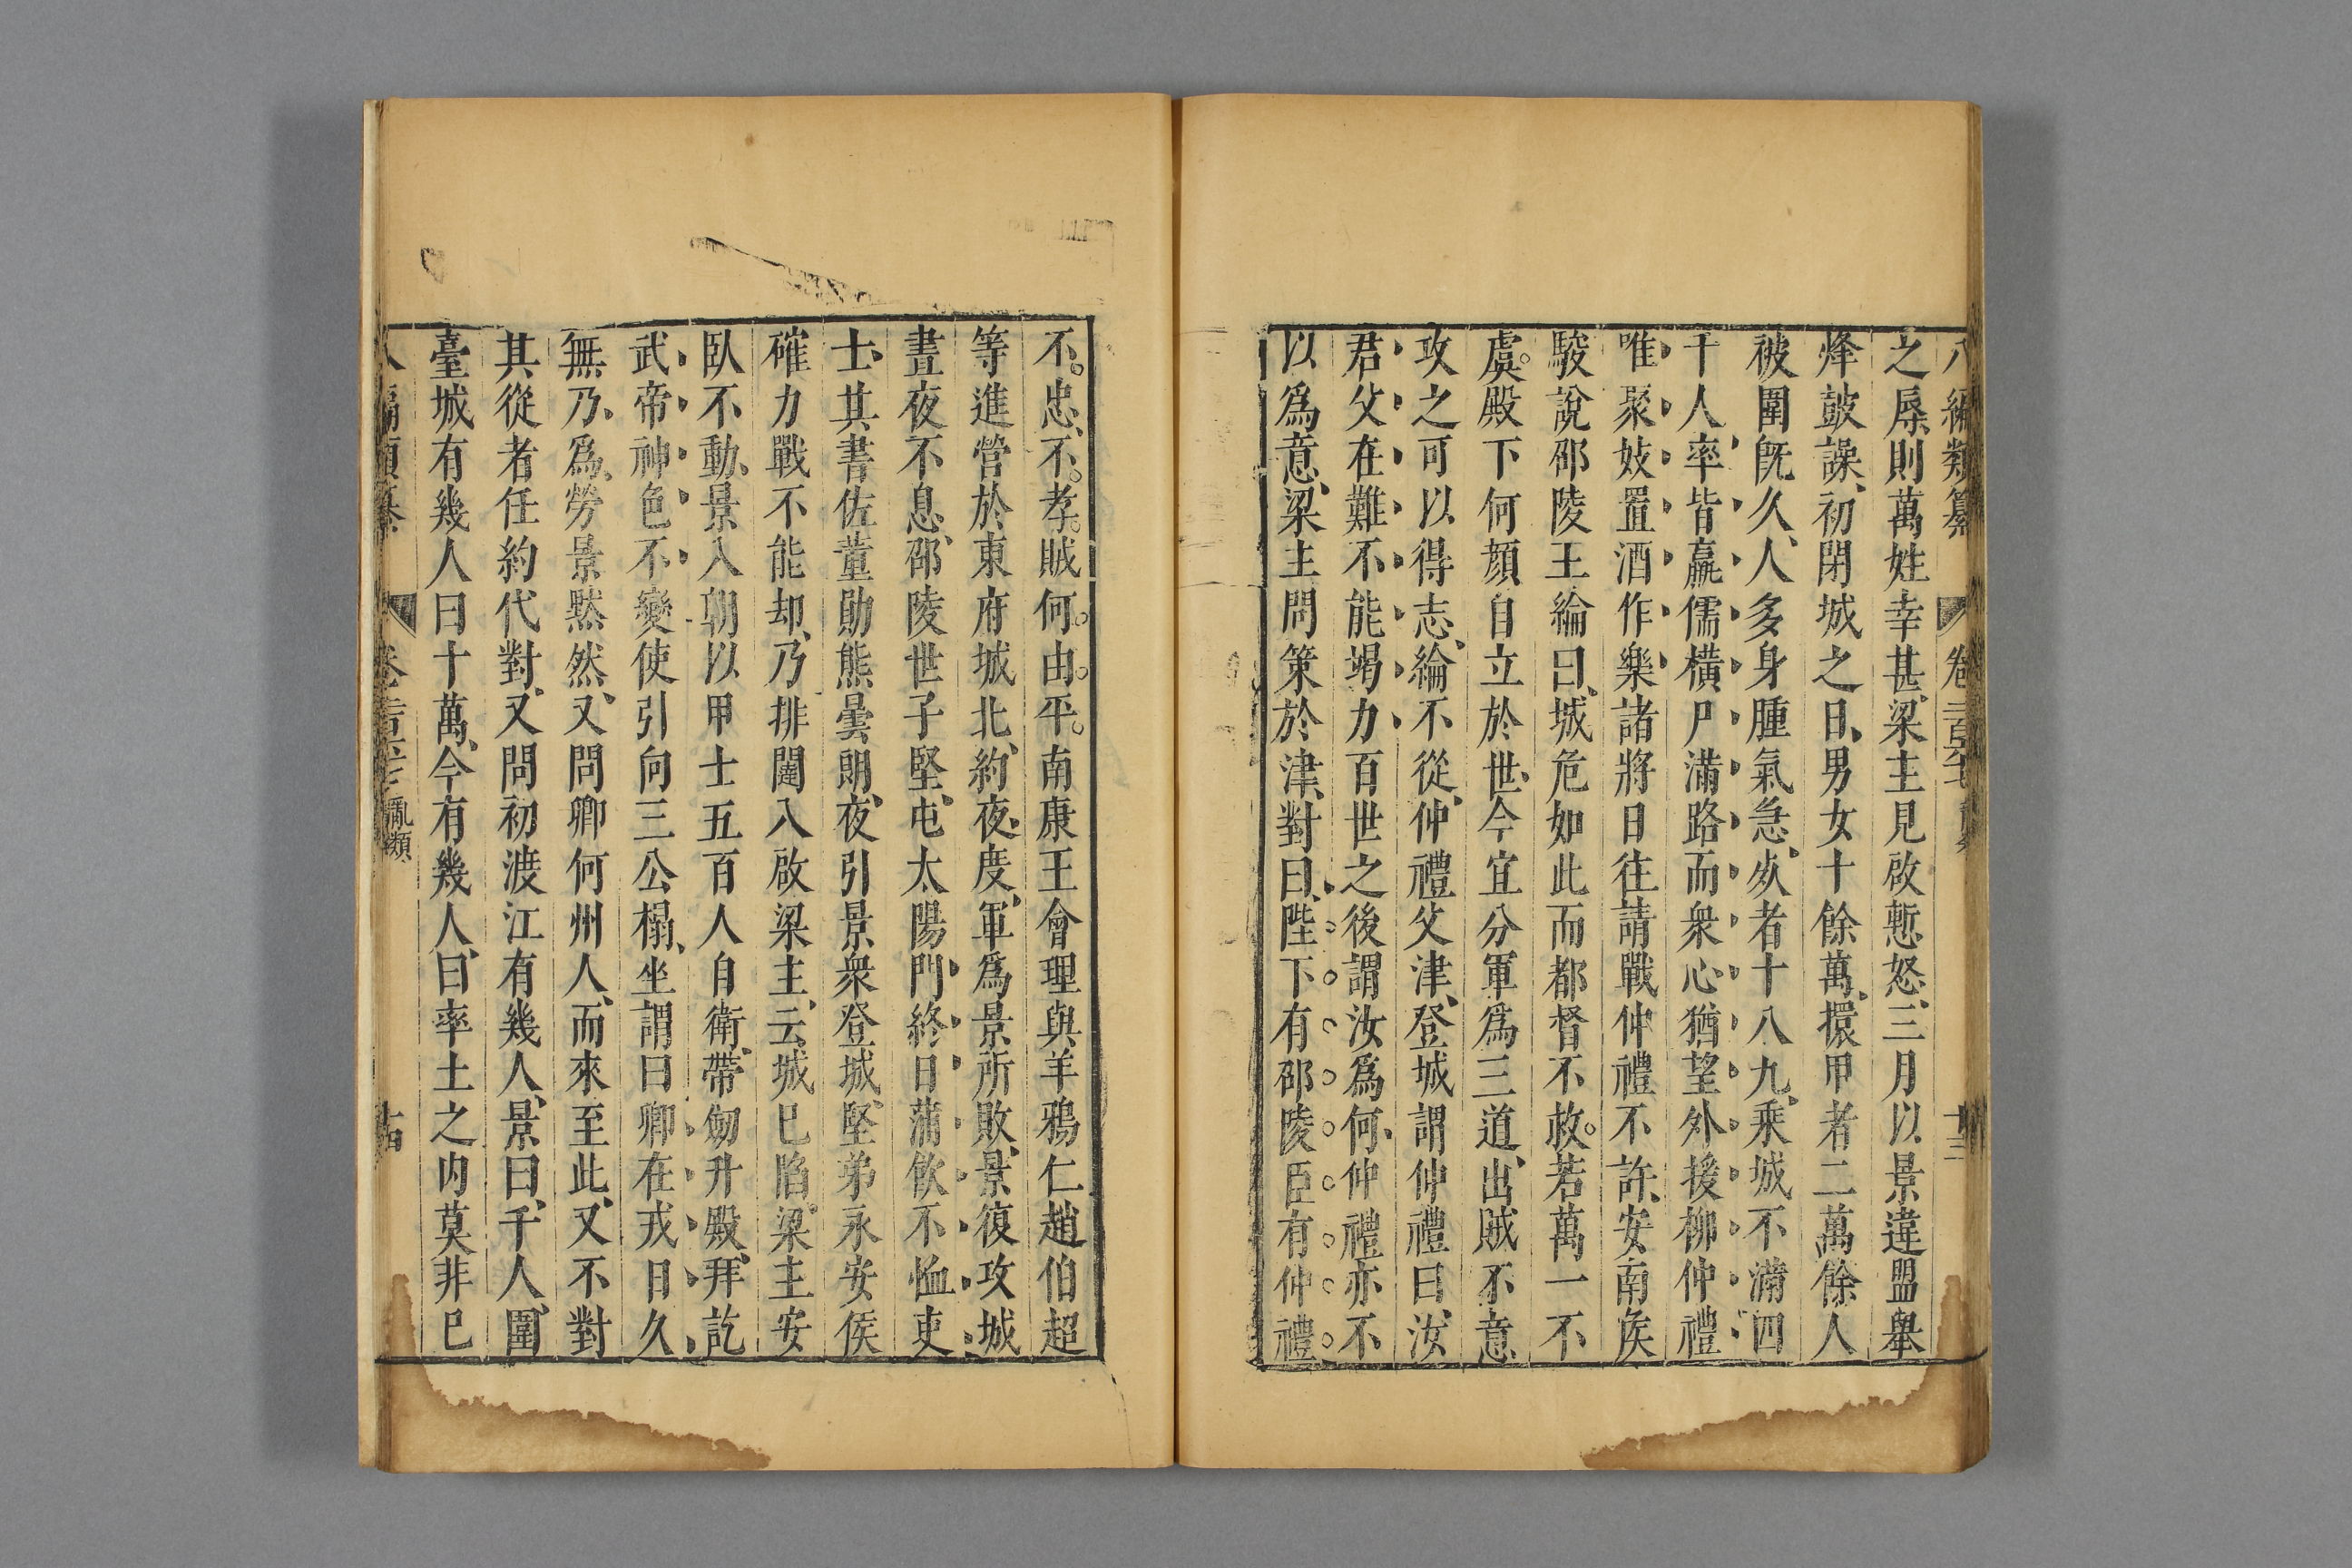 八編類纂 卷二百六十七 十三
之辱則萬姓幸甚梁主見啟慙怒三月以景違盟舉
烽鼓譟初閉城之日男女十餘萬擐甲者二萬餘人
被圍既久人多身腫氣急死者十八九乘城不滿四
千人率皆羸儒橫尸滿路而衆心猶望外援柳仲禮
唯聚妓置酒作樂諸將日往請戰仲禮不許安南矦
駿說邵陵王綸曰城危如此而都督不救若萬一不
虞殿下何顏自立於世今宜分軍爲三道出賊不意
攻之可以得志綸不從仲禮父津登城謂仲禮曰汝
君父在難不能竭力百世之後謂汝爲何仲禮亦不
以爲意梁主問策於津對曰陛下有邵陵臣有仲禮
不忠不孝賊何由平南康王會理與羊鴉仁趙伯超
等進營於東府城北約夜度軍爲景所敗景復攻城
晝夜不息邵陵世子堅屯太陽門終日蒲飲不恤吏
士其書佐董勛熊曇朗夜引景衆登城堅弟永安侯
確力戰不能却乃排闥入啟梁主云城已陷梁主安
臥不動景入朝以甲士五百人自衛帶劒升殿拜訖
武帝神色不變使引向三公榻坐謂曰卿在戎日久
無乃爲勞景默然又問卿何州人而來至此又不對
其從者任約代對又問初渡江有幾人景曰千人圍
臺城有幾人曰十萬今有幾人曰率土之內莫非已
八編類纂 卷二百六十七 亂類 十四